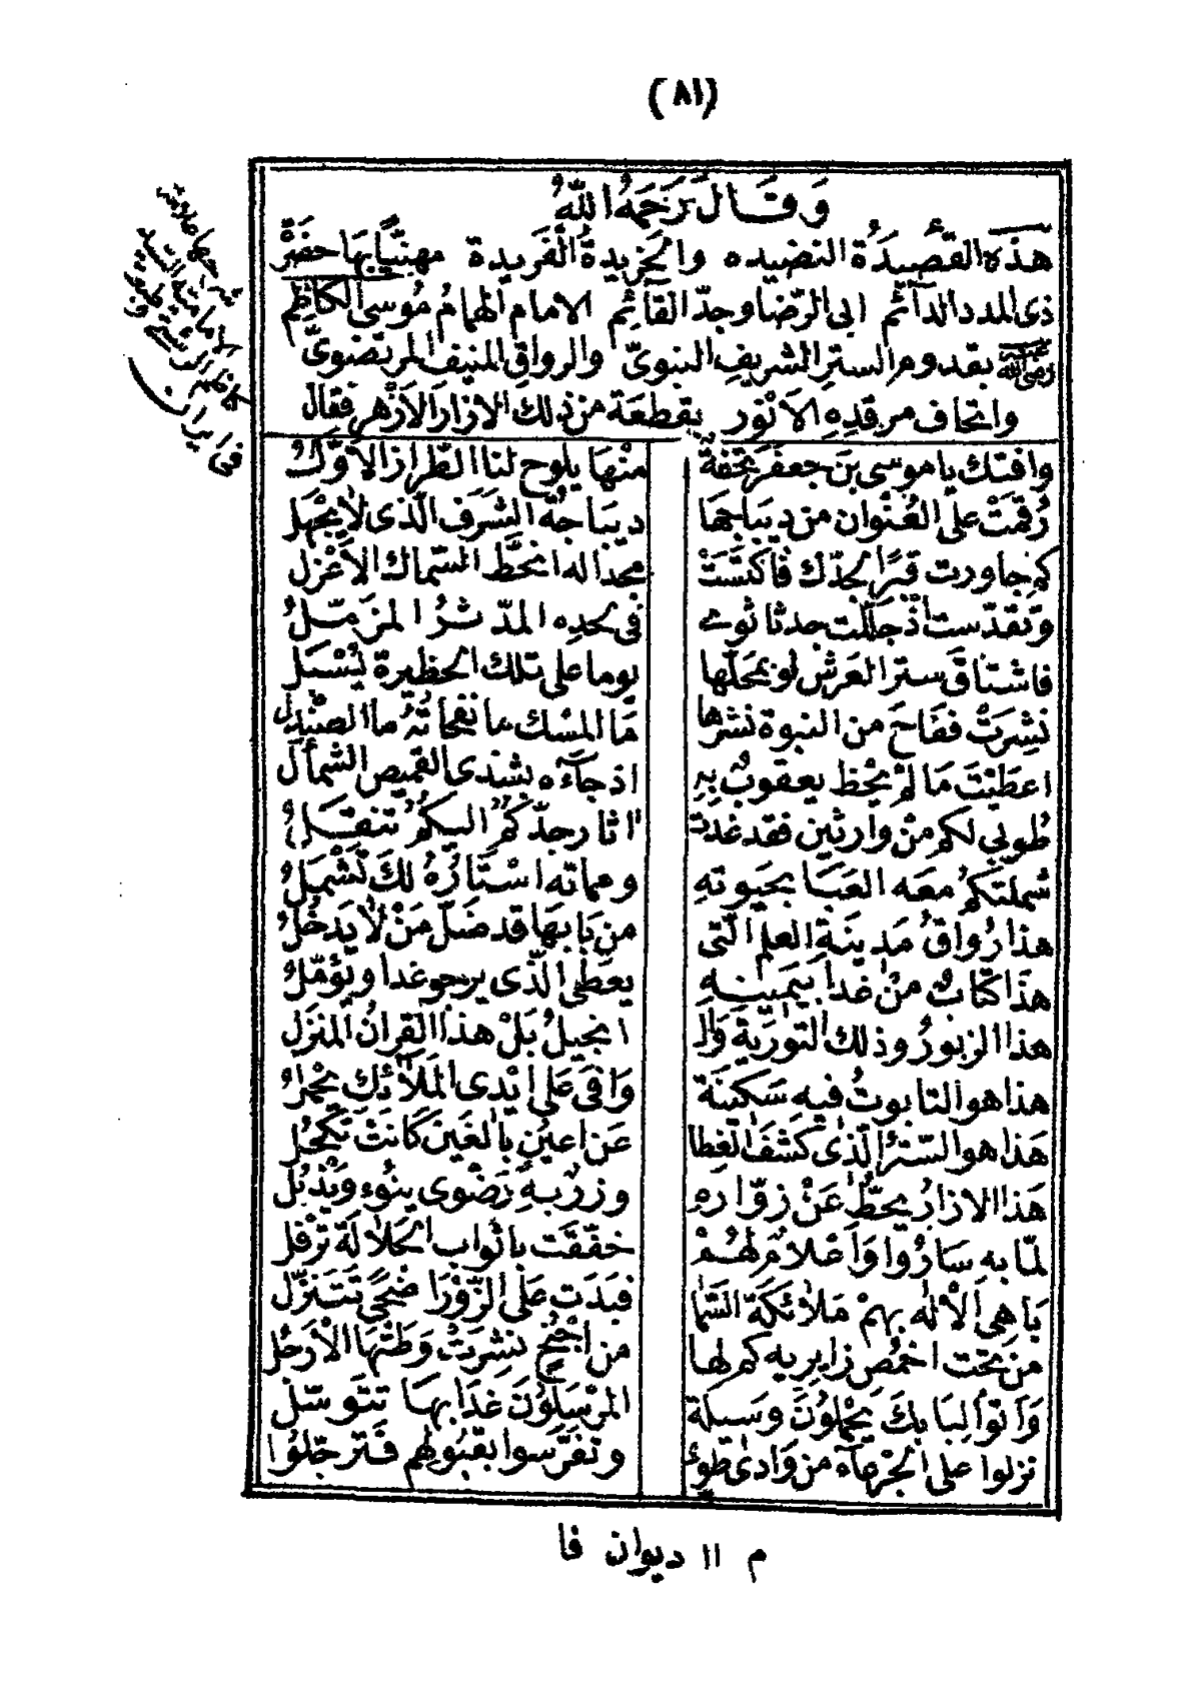 (٨١)
وَقَالَ رَحِمَهُ اللّٰهُ
هٰذه القصيدَة النضيده والخريدة الفريدة مهنّيًا بها حضرة
ذى المدد الدآئم ابى الرّضا وجدّ القآئم الامام الهمامُ مُوسى الكاظم
رضى الله عنه بقدوم الستر الشريف النبوىّ والرواق المنيف المرتضوىّ
واتحاف مرقدهِ الاَنوَر بقطعَة من ذلك الازار الاَزْهر فقال
وافتك يا موسى بنَ جعفَر تحفَة منْها يلوح لنا الطّراز الاَوّلُ
رُقمَتْ على العُنْوان من ديبَاجها ديبَاجةُ الشرَف الّذى لا يُجْهَل
كم جاورت قبرًا لجدّك فَاكتسَتْ مجدا له انحَطّ السّماك الاَعْزل
وتقدّست اذ جَلّلت جدثا ثوى فى لحدِه المدّثرُ المزمّلُ
فاشتاقَ ستر العَرش لو بمحلّها يوما على تلك الحظيرة يُسْبَل
نشِرَتْ ففَاحَ من النبوة نشرها مَا المسْك ما نفحاتهُ ما الصنْدل
اعطيْتَ مَا لمْ يَحْظ يعقوبٌ بهِ اذ جآءه بشذى القميص الشمأل
طوبى لكم منْ وارثين فقد غدت اثار جدّكمُ اليكُمْ تنقَلُ
شملتكمُ معَه العَبَا بحَيوتهِ ومماته اسْتَارُهُ لكَ تَشْملُ
هذا رُواقُ مَدينَةِ العلم الّتى من بَابهَا قد ضَلّ مَنْ لا يَدخُلُ
هذَا كتَابٌ منْ غدا بيَمينهِ يعطى الّذى يرجو غدا ويُؤمّلُ
هذا الزبورُ وذلك التوريةُ وَالـ انجيلُ بَلْ هذا القرانُ المنزَل
هذا هو التابوتُ فيه سَكينَة وَافى عَلى ايْدى المَلائِك يُحْمَلُ
هَذا هو السّترُ الّذى كشَفَ الغِطا عَن اعين بالغَين كانَتْ تكحَلُ
هَذا الازارُ يحطّ عَنْ زوّارهِ وزرًا بهِ رَضْوى ينُوء وَيَذْبُل
لمّا بهِ سَارُوا وَاَعْلامٌ لهُمْ خفَقَت باثواب الجَلالَة تَرْفل
بَاهى الالٰه بهمْ مَلائكةَ السَّمَا فبَدَت عَلى الزّوْرَا ضحًى تَتَنزّل
من تحت اخمُص زايريه كم لها من اجْنُحٍ نشرَتْ وَطتْهَا الاَرجُل
وَاَتوا لبَابكَ يَحْملُونَ وَسيلة المرْسَلونَ غدَا بهَا تتوسّل
نزلوا على الجَرعَآء من وَادى طوى وتفرّسوا بقبُولهم فَترجّلوا
م ١١ ديوان فا